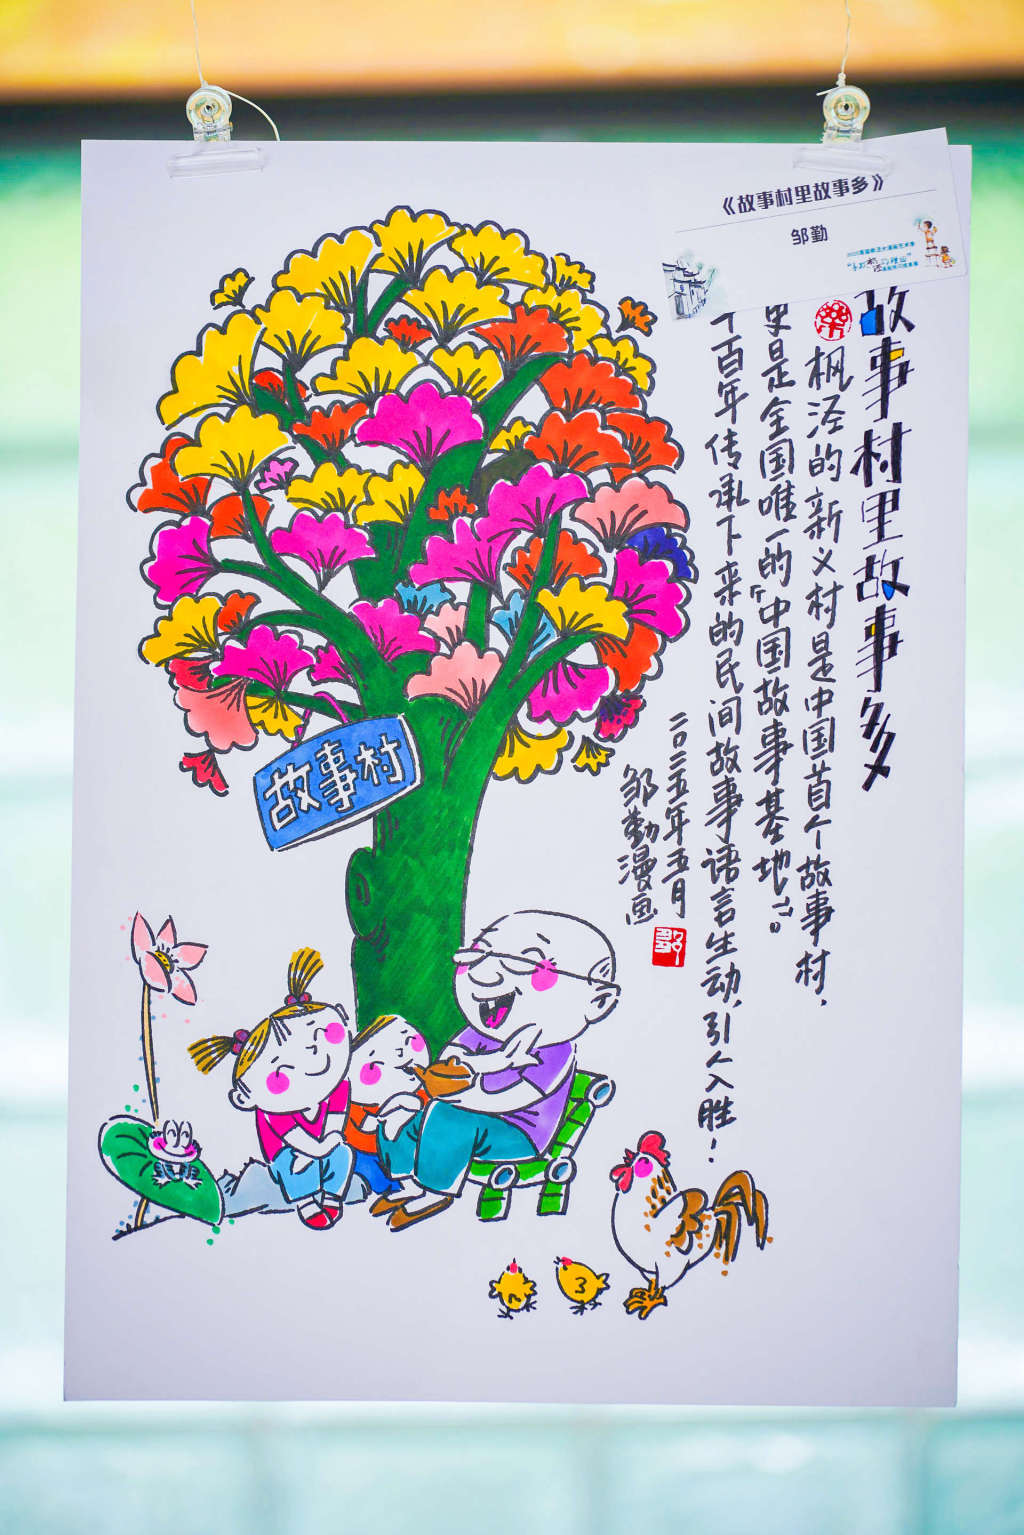 《故事村里故事多》
邹勤
故事村里故事多
枫泾的新义村是中国首个故事村，
更是全国唯一的“中国故事基地”。
千百年传承下来的民间故事语言生动，引人入胜！
二〇二五年五月
邹勤漫画
故事村